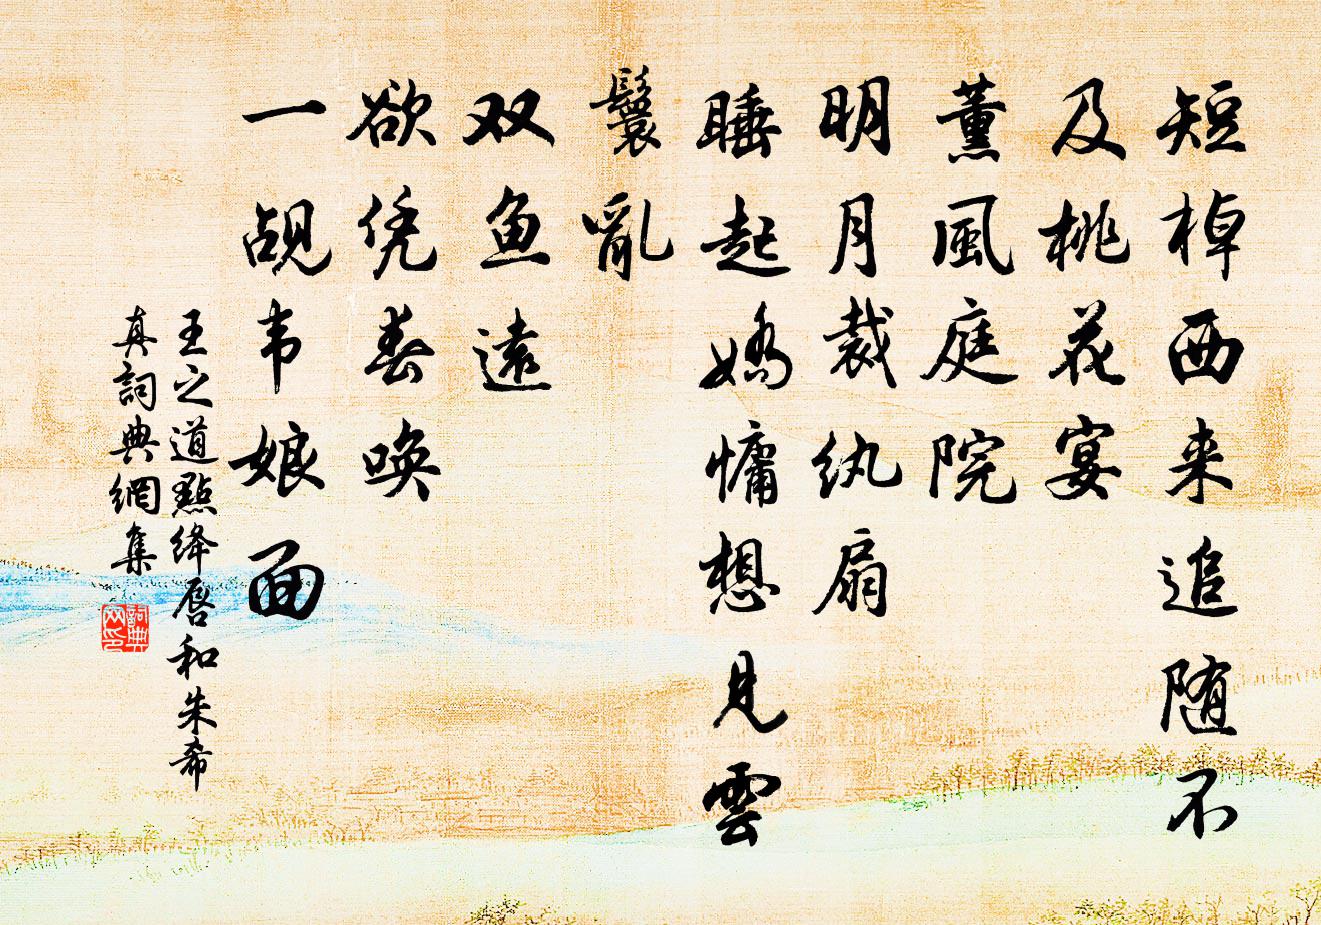 短棹西来追随不
及桃花宴
薰風庭院
明月裁纨扇
睡起嬌慵想見雲
鬟亂
双鱼遠
欲凭春唤
一觇韦娘面
王之道點绛唇和朱希
真詞典網集
詞典
网印